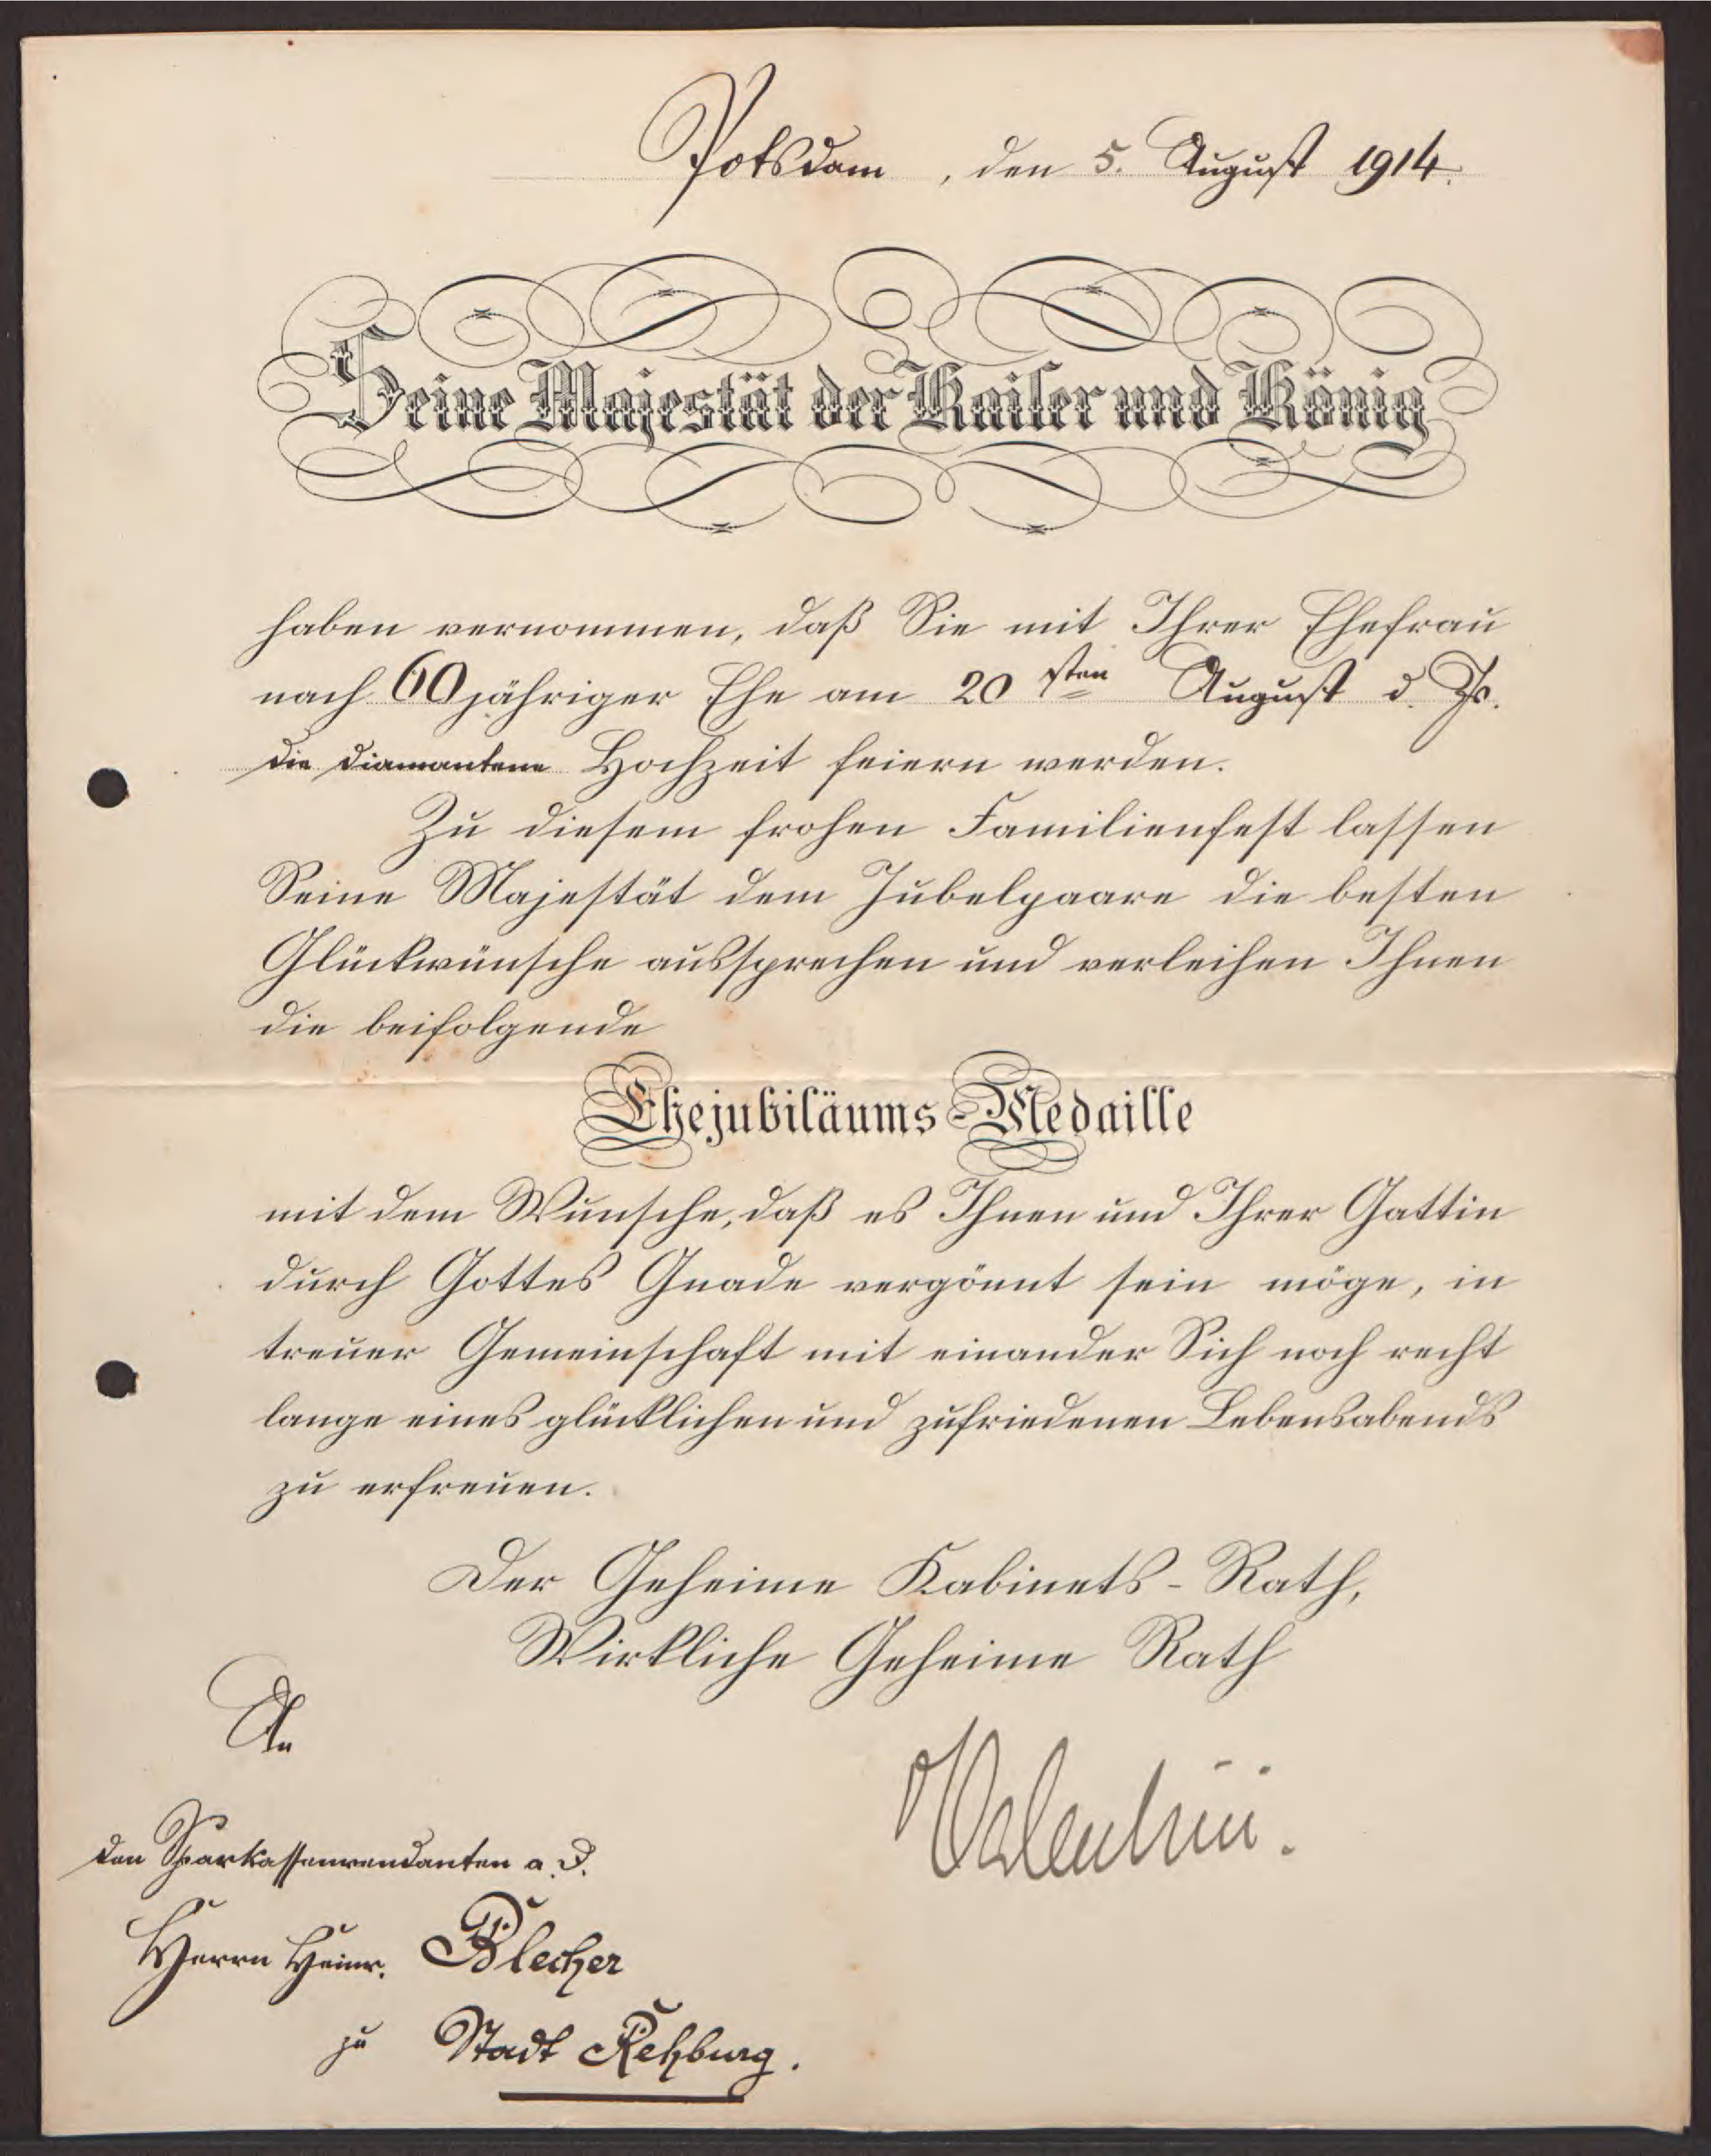 Potsdam, den 5. August 1914.
Seine Majestät der Kaiser und König
haben vernommen, daß Sie mit Ihrer Ehefrau
nach 60jähriger Ehe am 20sten August d. Js.
die diamantene Hochzeit feiern werden.
Zu diesem frohen Familienfest lassen
Seine Majestät dem Jubelpaare die besten
Glückwünsche aussprechen und verleihen Ihnen
die beifolgende
Ehejubiläums-Medaille
mit dem Wunsche, daß es Ihnen und Ihrer Gattin
durch Gottes Gnade vergönnt sein möge, in
treuer Gemeinschaft mit einander Sich noch recht
lange eines glücklichen und zufriedenen Lebensabends
zu erfreuen.
Der Geheime Kabinets-Rath,
Wirkliche Geheime Rath
Valentini.
An
den Sparkassenrendanten a. D.
Herrn Heinr. Blecher
zu Stadt Rehburg.